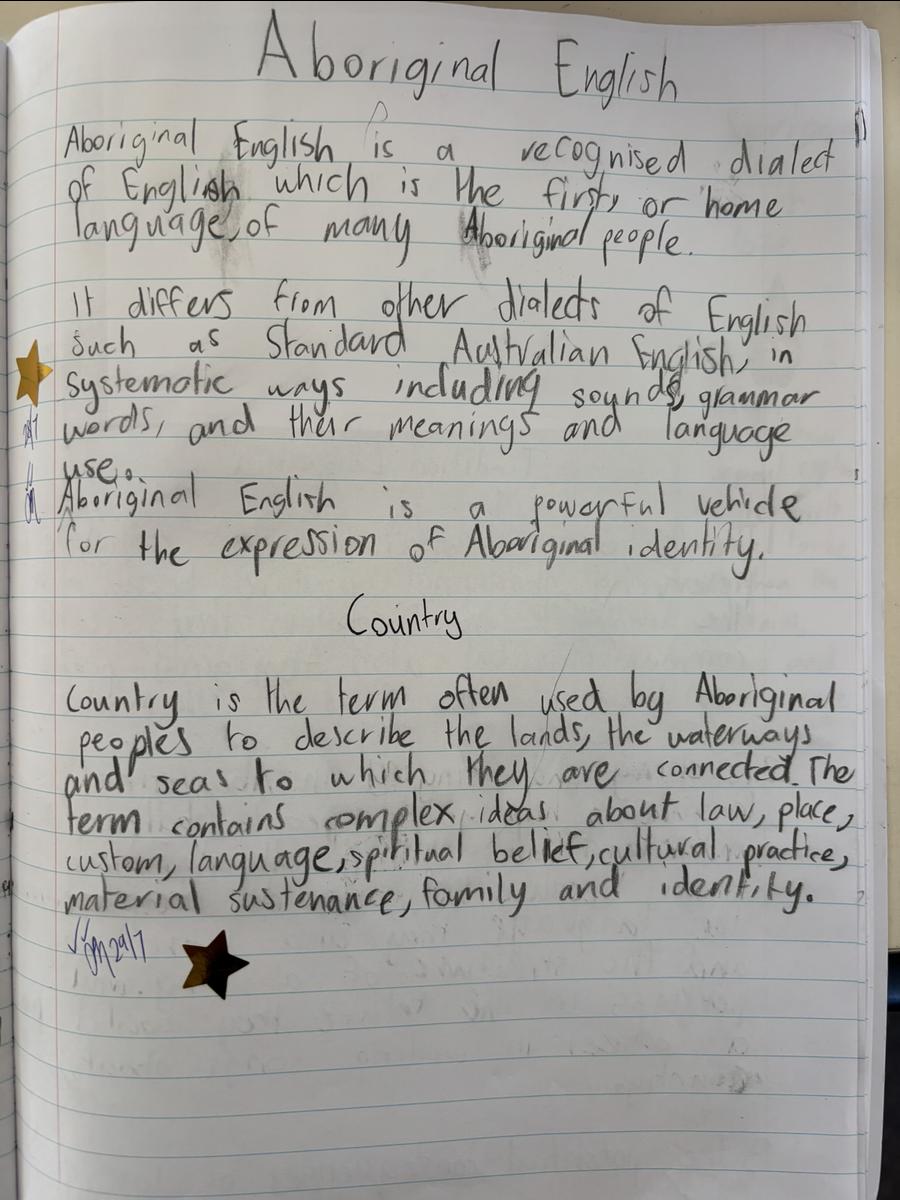 Aboriginal English
Aboriginal English is a recognised dialect
of English which is the first, or home
language, of many Aboriginal people.
It differs from other dialects of English
such as Standard Australian English, in
systematic ways including sounds, grammar
words, and their meanings and language
use.
Aboriginal English is a powerful vehicle
for the expression of Aboriginal identity.
Country
Country is the term often used by Aboriginal
peoples to describe the lands, the waterways
and seas to which they are connected. The
term contains complex ideas about law, place,
custom, language, spiritual belief, cultural practice,
material sustenance, family and identity.
29/7